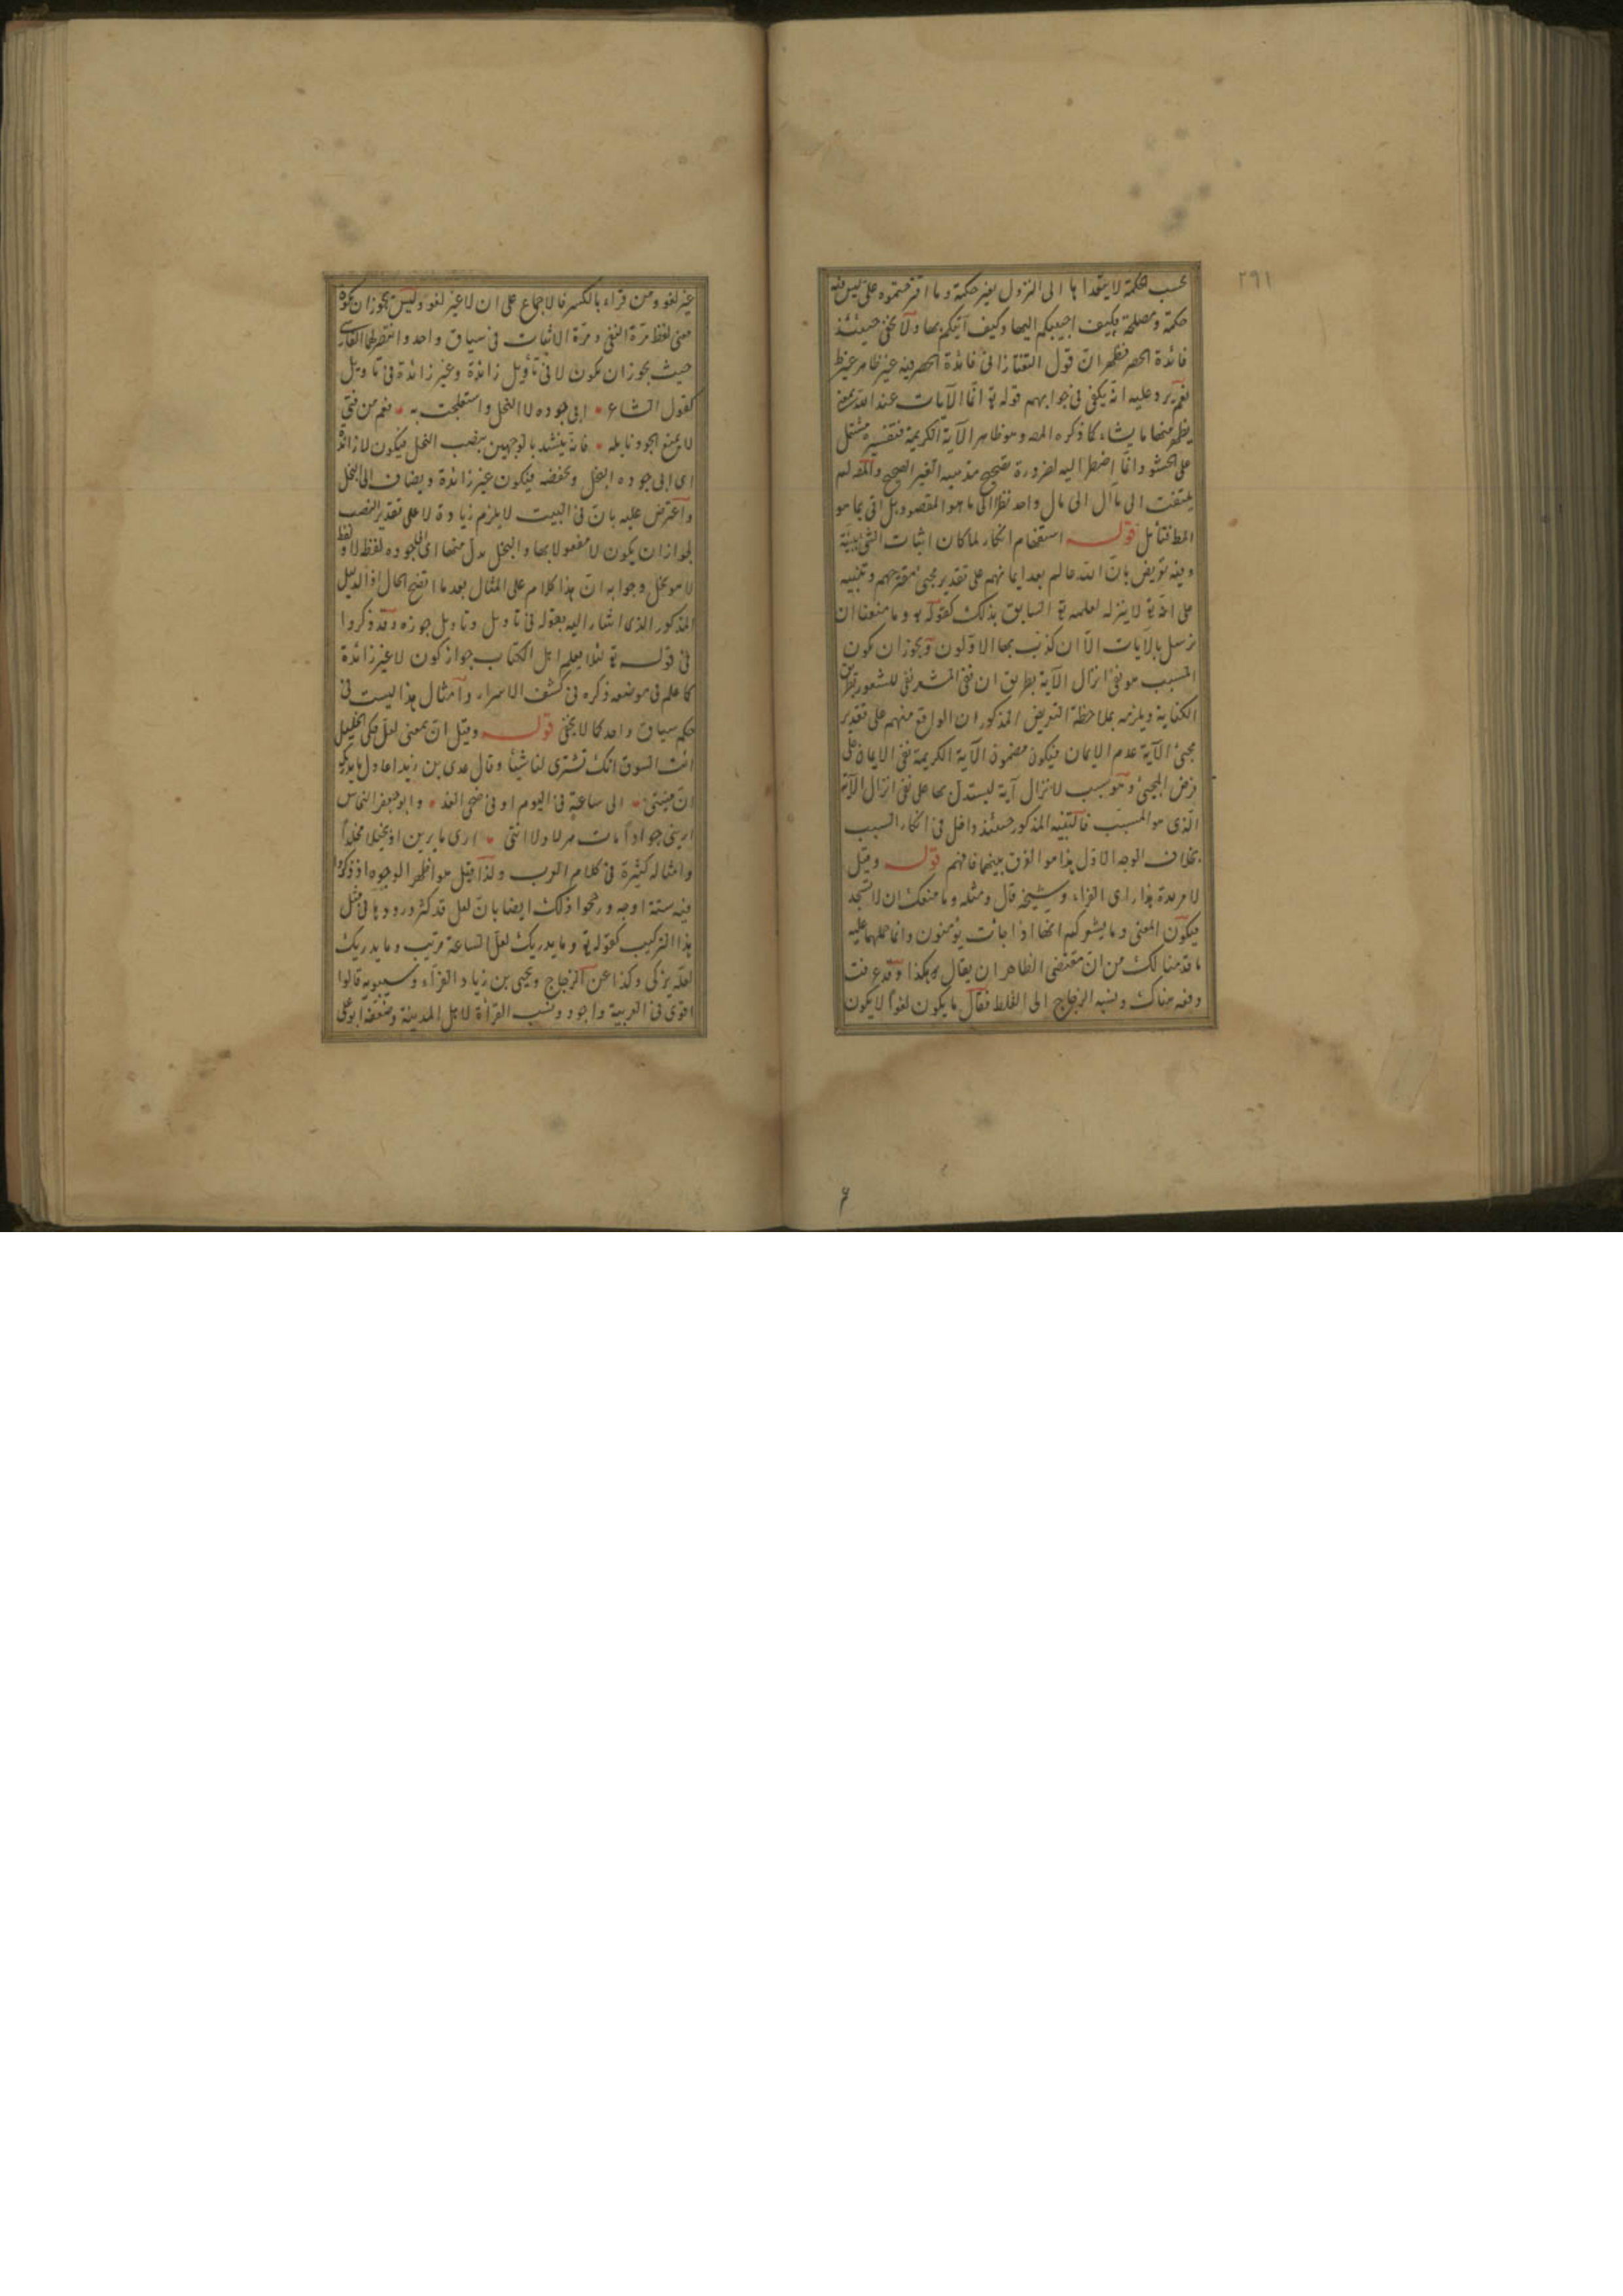 ٢٩١
بحسب حكمة لا يتعداها الى النزول بغير حكمة وما اقترحتموه على ليس فيه
حكمة ومصلحة فكيف اجيبكم اليها وكيف آتيكم بها ولا يخفى حينئذ
فائدة الحصر فظهر ان قول التفتازانى فائدة الحصر فيه غير ظاهر
نعم يرد عليه انه يكفى فى جوابهم قوله تع انما الآيات عند الله بمعنى
يظهر منها ما يشاء كما ذكره المص وهو ظاهر الآية الكريمة فتفسيره مشتمل
على الحشو وانما اضطر اليه لضرورة تصحيح مذهبه الغير الصحيح والمص لم
يلتفت الى مآل الى مال واحد نظرا الى ما هو المقصود بل اتى بما هو
فتأمل قوله استفهام انكار لما كان اثبات الشئ ببينة
وفيه تعريض بان الله عالم بعدم ايمانهم على تقدير مجئ مقترحهم وتنبيه
على انه تع لا ينزله لعلمه تع السابق بذلك كقوله تع وما منعنا ان
نرسل بالآيات الا ان كذب بها الاولون ويجوز ان يكون
المسبب هو نفى انزال الآية بطريق ان نفى المشعر نفى للشعور بطريق
الكناية ويلزمه بملاحظة التعريض المذكور ان الواقع منهم على تقدير
مجئ الآية عدم الايمان فيكون مضمون الآية الكريمة نفى الايمان على
فرض المجئ وهو سبب لا نزال آية ليستدل بها على نفى انزال الآية
الذى هو المسبب فالتنبيه المذكور حينئذ داخل فى انكار السبب
بخلاف الوجه الاول هذا هو الفرق بينهما فافهم قوله وقيل
لا مزيدة هذا رأى الفراء وشيخه قال ومثله وما منعك ان لا تسجد
فيكون المعنى وما يشعركم انها اذا جائت يؤمنون وانما حملهما عليه
ما قدمنا لك من ان مقتضى الظاهر ان يقال هكذا وقد عرفت
دفعه هناك ونسبه الزجاج الى الغلط فقال ما يكون لغوا لا يكون
غير لغو ومن قراء بالكسر فالاجماع على ان لا غير لغو وليس يجوز ان يكون
معنى لفظ مرة النفى ومرة الاثبات فى سياق واحد وانتصر لها الفارسى
حيث يجوز ان يكون لا فى تأويل زائدة وغير زائدة فى تاويل
كقول الشاعر ابى جوده لا البخل واستعجلت به نعم من فتى
لا يمنع الجود نايله فانه ينشد بالوجهين بنصب البخل فيكون لا زائدة
اى ابى جوده البخل وبخفضه فيكون غير زائدة ويضاف الى البخل
واعترض عليه بان فى البيت لا يلزم زيادة لا على تقدير النصب
لجواز ان يكون لا مفعولا بها والبخل بدل منها اى ابى جوده لفظ لا ولفظ
لا هو بخل وجوابه ان هذا كلام على المثال بعد ما اتضح الحال اذ الدليل
المذكور الذى اشار اليه بقوله فى تاويل وتاويل جوزه وقد ذكروا
فى قوله تع لئلا يعلم اهل الكتاب جواز كون لا غير زائدة
كما علم فى موضعه ذكره فى كشف الاسرار وامثال هذا ليست فى
حكم سياق واحد كما لا يخفى قوله وقيل ان بمعنى لعل حكى الخليل
ائت السوق انك تشترى لنا شيئا وقال عدى بن زيد اعاذل ما يدريك
ان منيتى الى ساعة فى اليوم او فى ضحى الغد وابو جعفر النحاس
ارينى جوادا مات هزلا ولا انثى ارى ما ترين او بخيلا مخلدا
وامثاله كثيرة فى كلام العرب ولذا قيل هو اظهر الوجوه اذ ذكروا
فيه ستة اوجه ورجحوا ذلك ايضا بان لعل قد كثر ورودها فى مثل
هذا التركيب كقوله تع وما يدريك لعل الساعة قريب وما يدريك
لعله يزكى وكذا عن الزجاج ويحيى بن زياد الفراء وسيبويه قالوا
اقوى فى العربية واجود ونسب القراة لاهل المدينة وضعفه ابو على